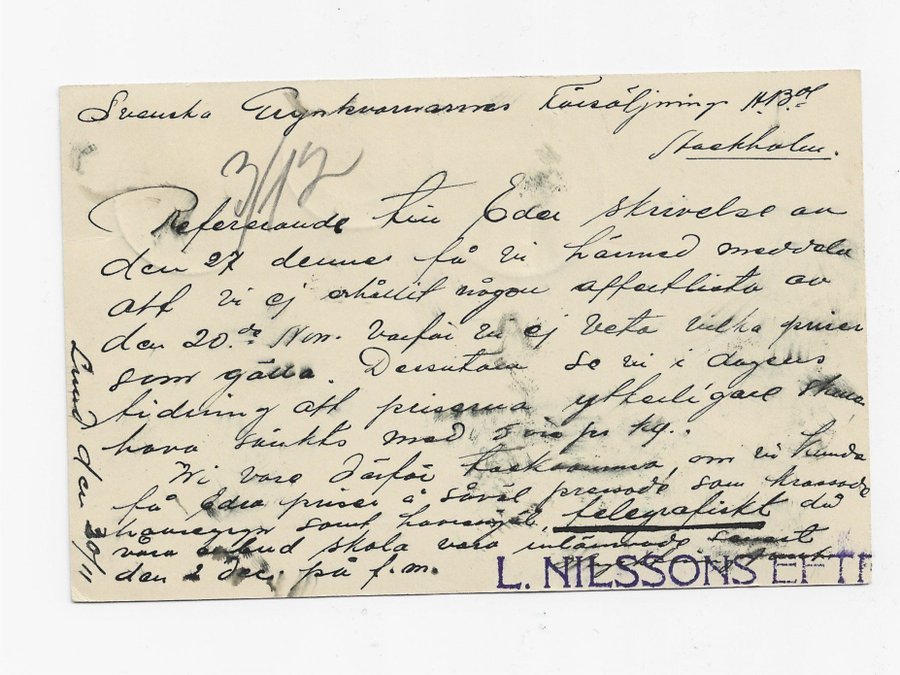 Svenska Grynkvarnarnes Försäljning A.B.
Stockholm.
3/12
Refererande till Eder skrivelse av
den 27 dennes få vi härmed meddela
att vi ej erhållit någon offertlista av
den 20.de Nov. varför vi ej veta vilka priser
som gälla. Dessutom se vi i dagens
tidning att priserna ytterligare skulle
hava sänkts med 5 öre pr kg.
Wi vore därför tacksamma, om vi kunde
få Edra priser å såväl pressade som krossade
havregryn samt havremjöl, telegrafiskt då
våra anbud skola vara inlämnade senast
den 2 dec. på f.m.
L. NILSSONS EFTR
Lund den 30/11